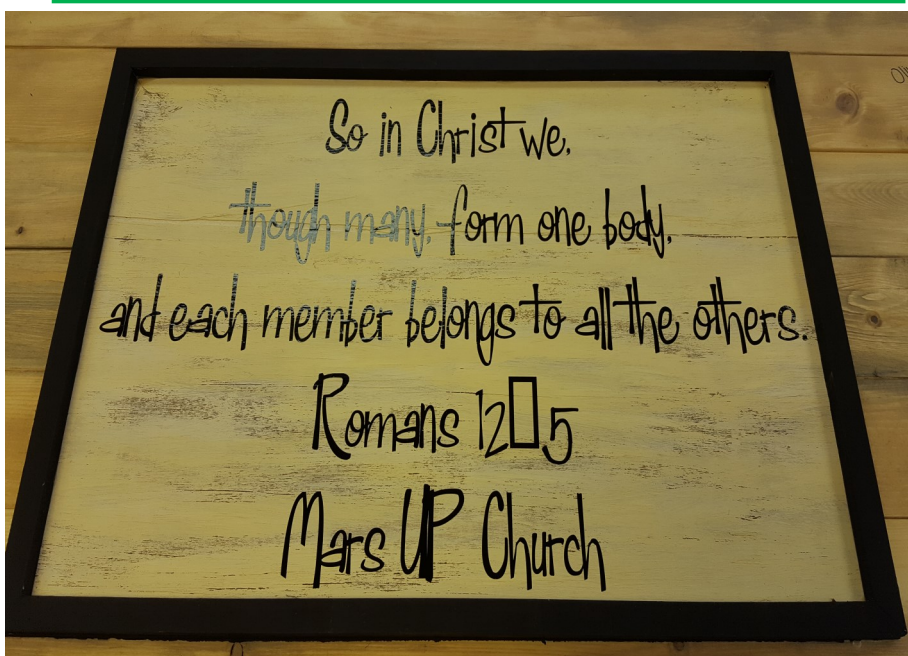 So in Christ we,
though many, form one body,
and each member belongs to all the others.
Romans 12▯5
Mars UP Church